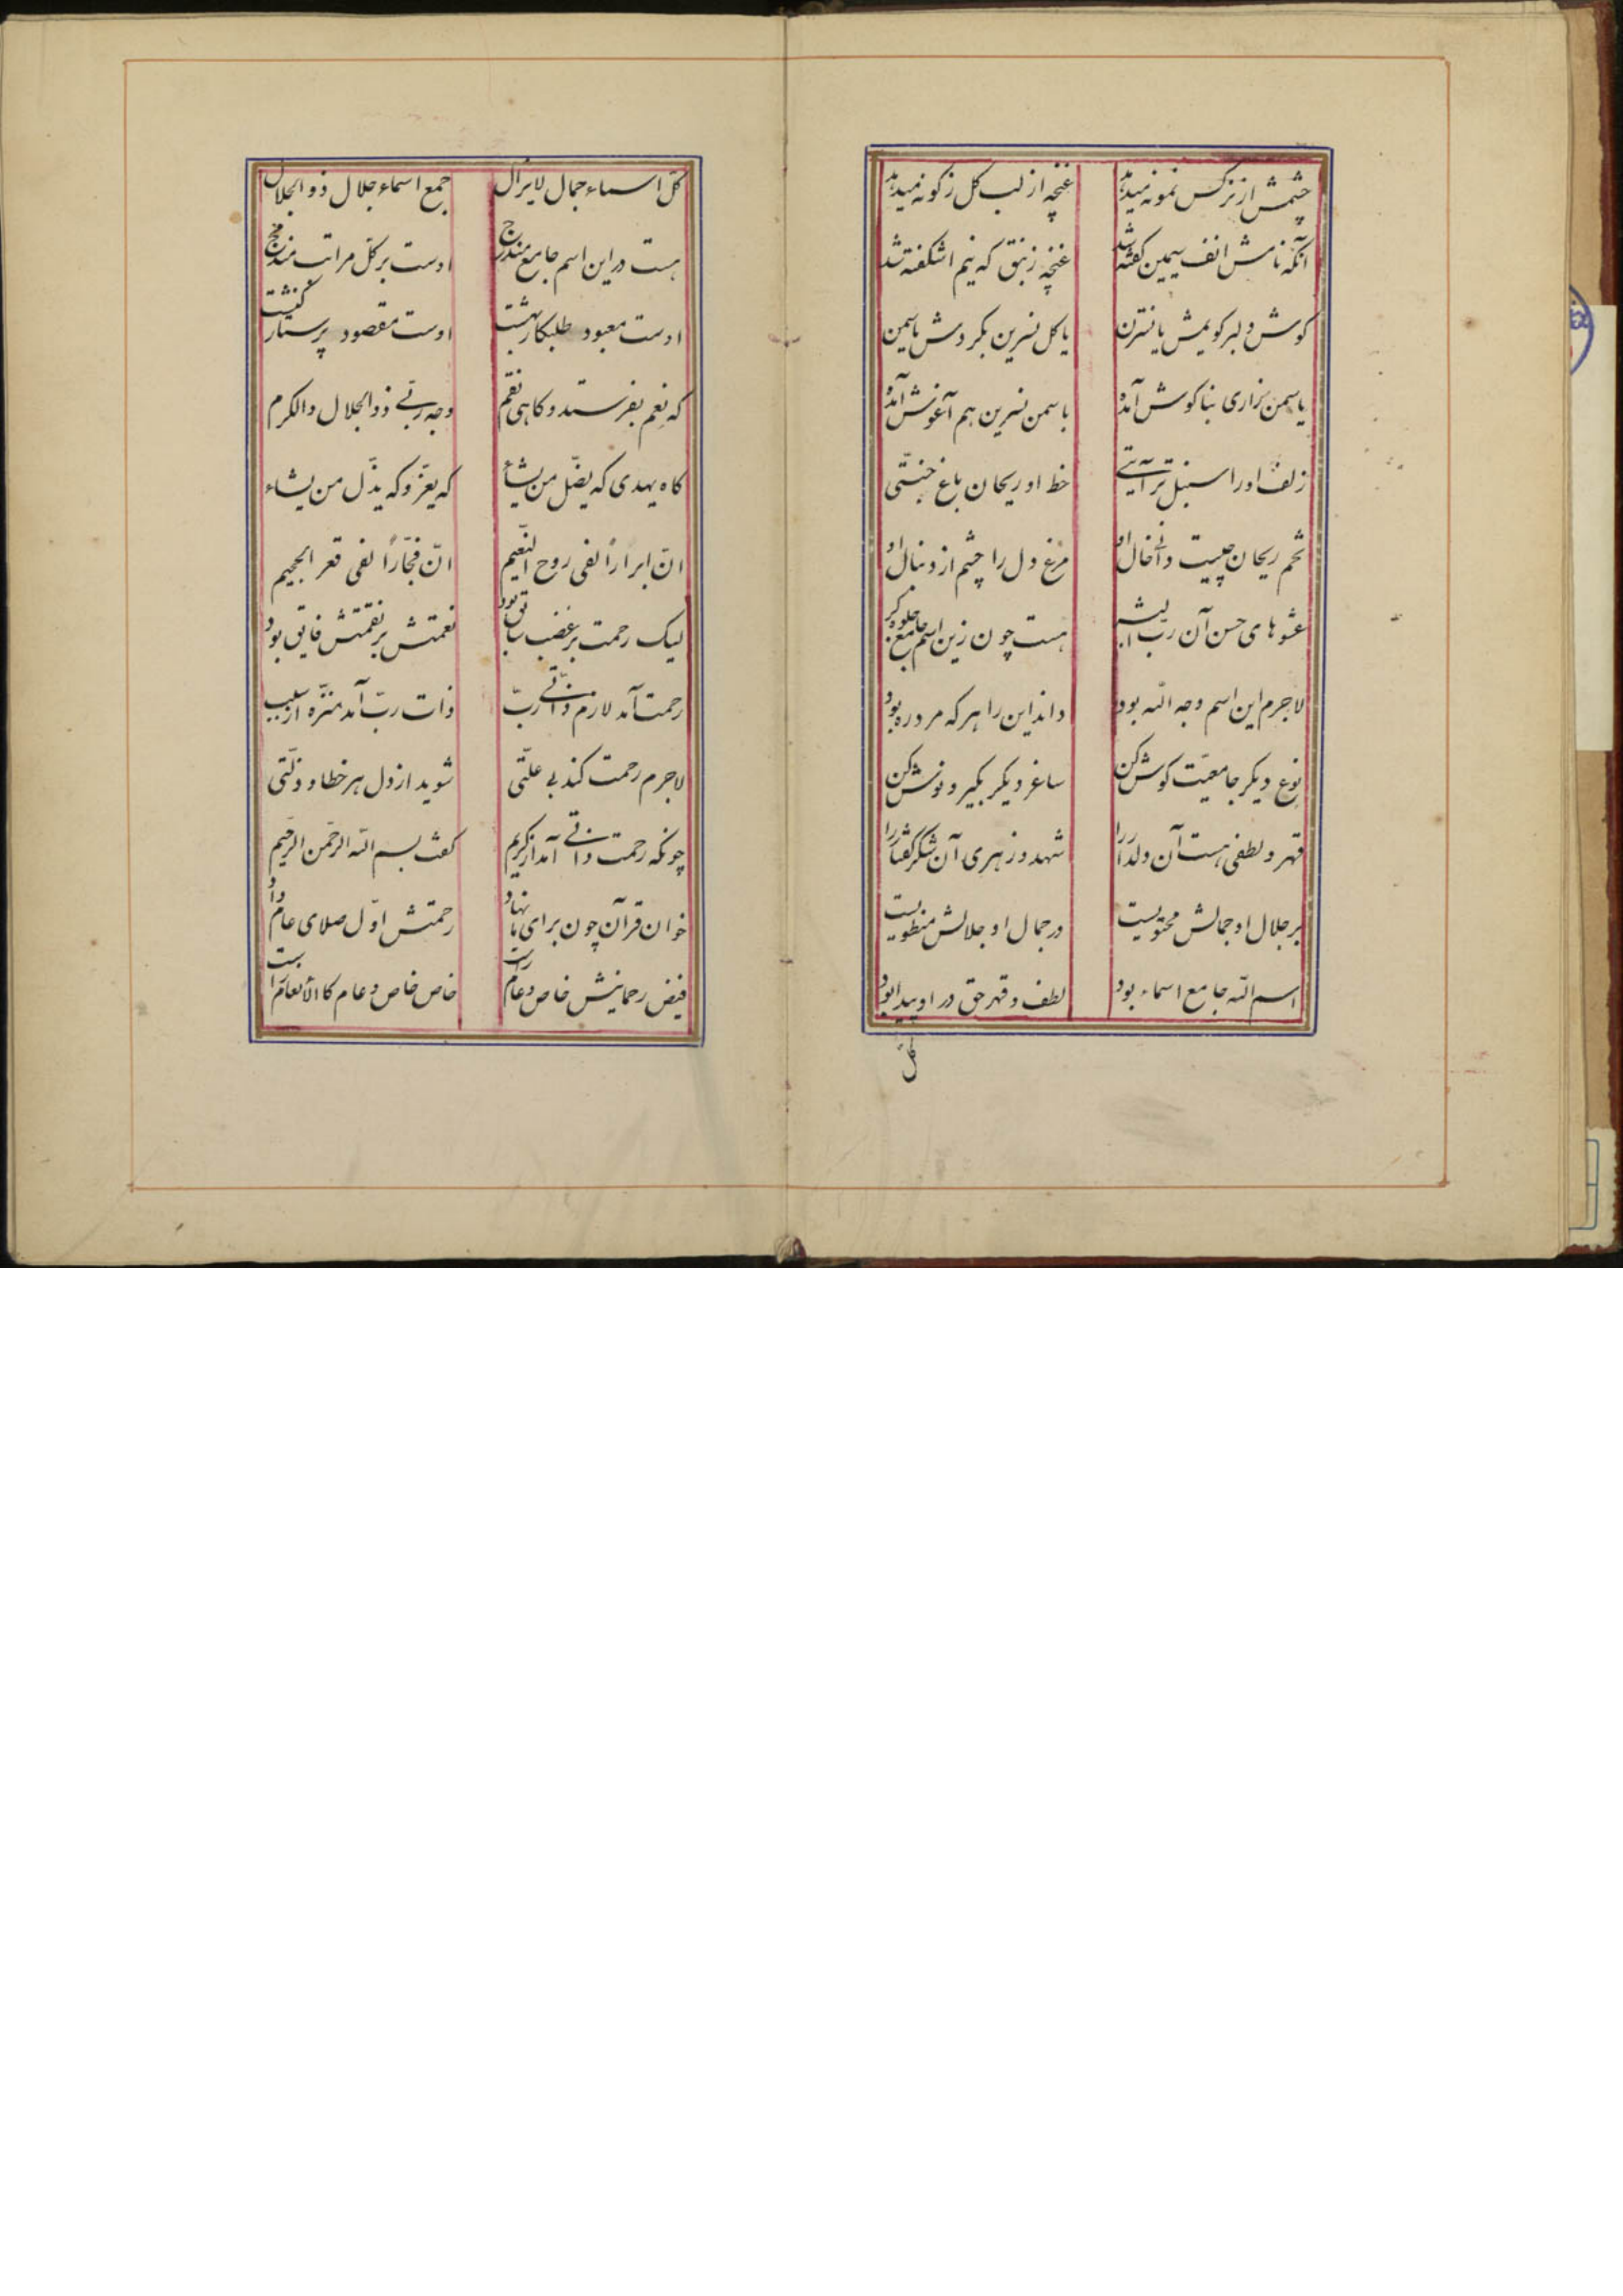 چشمش از نرکس نمونه میدهد
غنچه از لب کل ز کونه میدهد
آنکه نامش انف سیمین کفته شد
غنچه زنبق که نیم اشکفته شد
کوش دلبر کویمش یا نسترن
یا کل نسرین بکردش یاسمن
یاسمن زاری بنا کوش آمده
باسمن نسرین هم آغوش آمده
زلف او را سنبل تر آیتی
خط او ریحان باغ جنّتی
تخم ریحان چیست دانی خال او
مرغ دل را چشم از دنبال او
عشوهای حسن آن رب
هست چون زین اسم جامع جلوه کر
لاجرم این اسم وجه الله بود
داند این را هر که مرد ره بود
نوع دیکر جامعیّت کوش کن
ساغر دیکر بکیر و نوش کن
قهر و لطفی هست آن دلدار را
شهد و زهری آن شکر کفتار را
بر جلال او جمالش محتویست
در جمال او جلالش منطویست
اسم الله جامع اسماء بود
لطف و قهر حق در او پیدا بود
کلّ
کلّ اسماء جمال لایزال
جمع اسماء جلال ذو الجلال
هست در این اسم جامع مندرج
اوست بر کلّ مراتب
اوست معبود طلبکار بهشت
اوست مقصود پرستار کنشت
که نعم بفرستد و کاهی نقم
وجه ربّی ذو الجلال والکرم
کاه یهدی که یضّل من یشاء
که یعزّ و که یذّل من یشاء
انّ ابراراً لفی روح النّعیم
انّ فجّاراً لفی قعر الجحیم
لیک رحمت بر غضب سابق بود
نعمتش بر نقمتش فایق بود
رحمت آمد لازم ذاتی ربّ
ذات ربّ آمد منزّه از سبب
لاجرم رحمت کند بی علّتی
شوید از دل هر خطا و ذلّتی
چونکه رحمت ذاتی آمد از کریم
کفت بسم الله الرّحمن الرّحیم
خوان قرآن چون برای ما نهاد
رحمتش اوّل صلای عام داد
فیض رحمانیش خاص و عام راست
خاص خاص و عام کا الأنعام راست